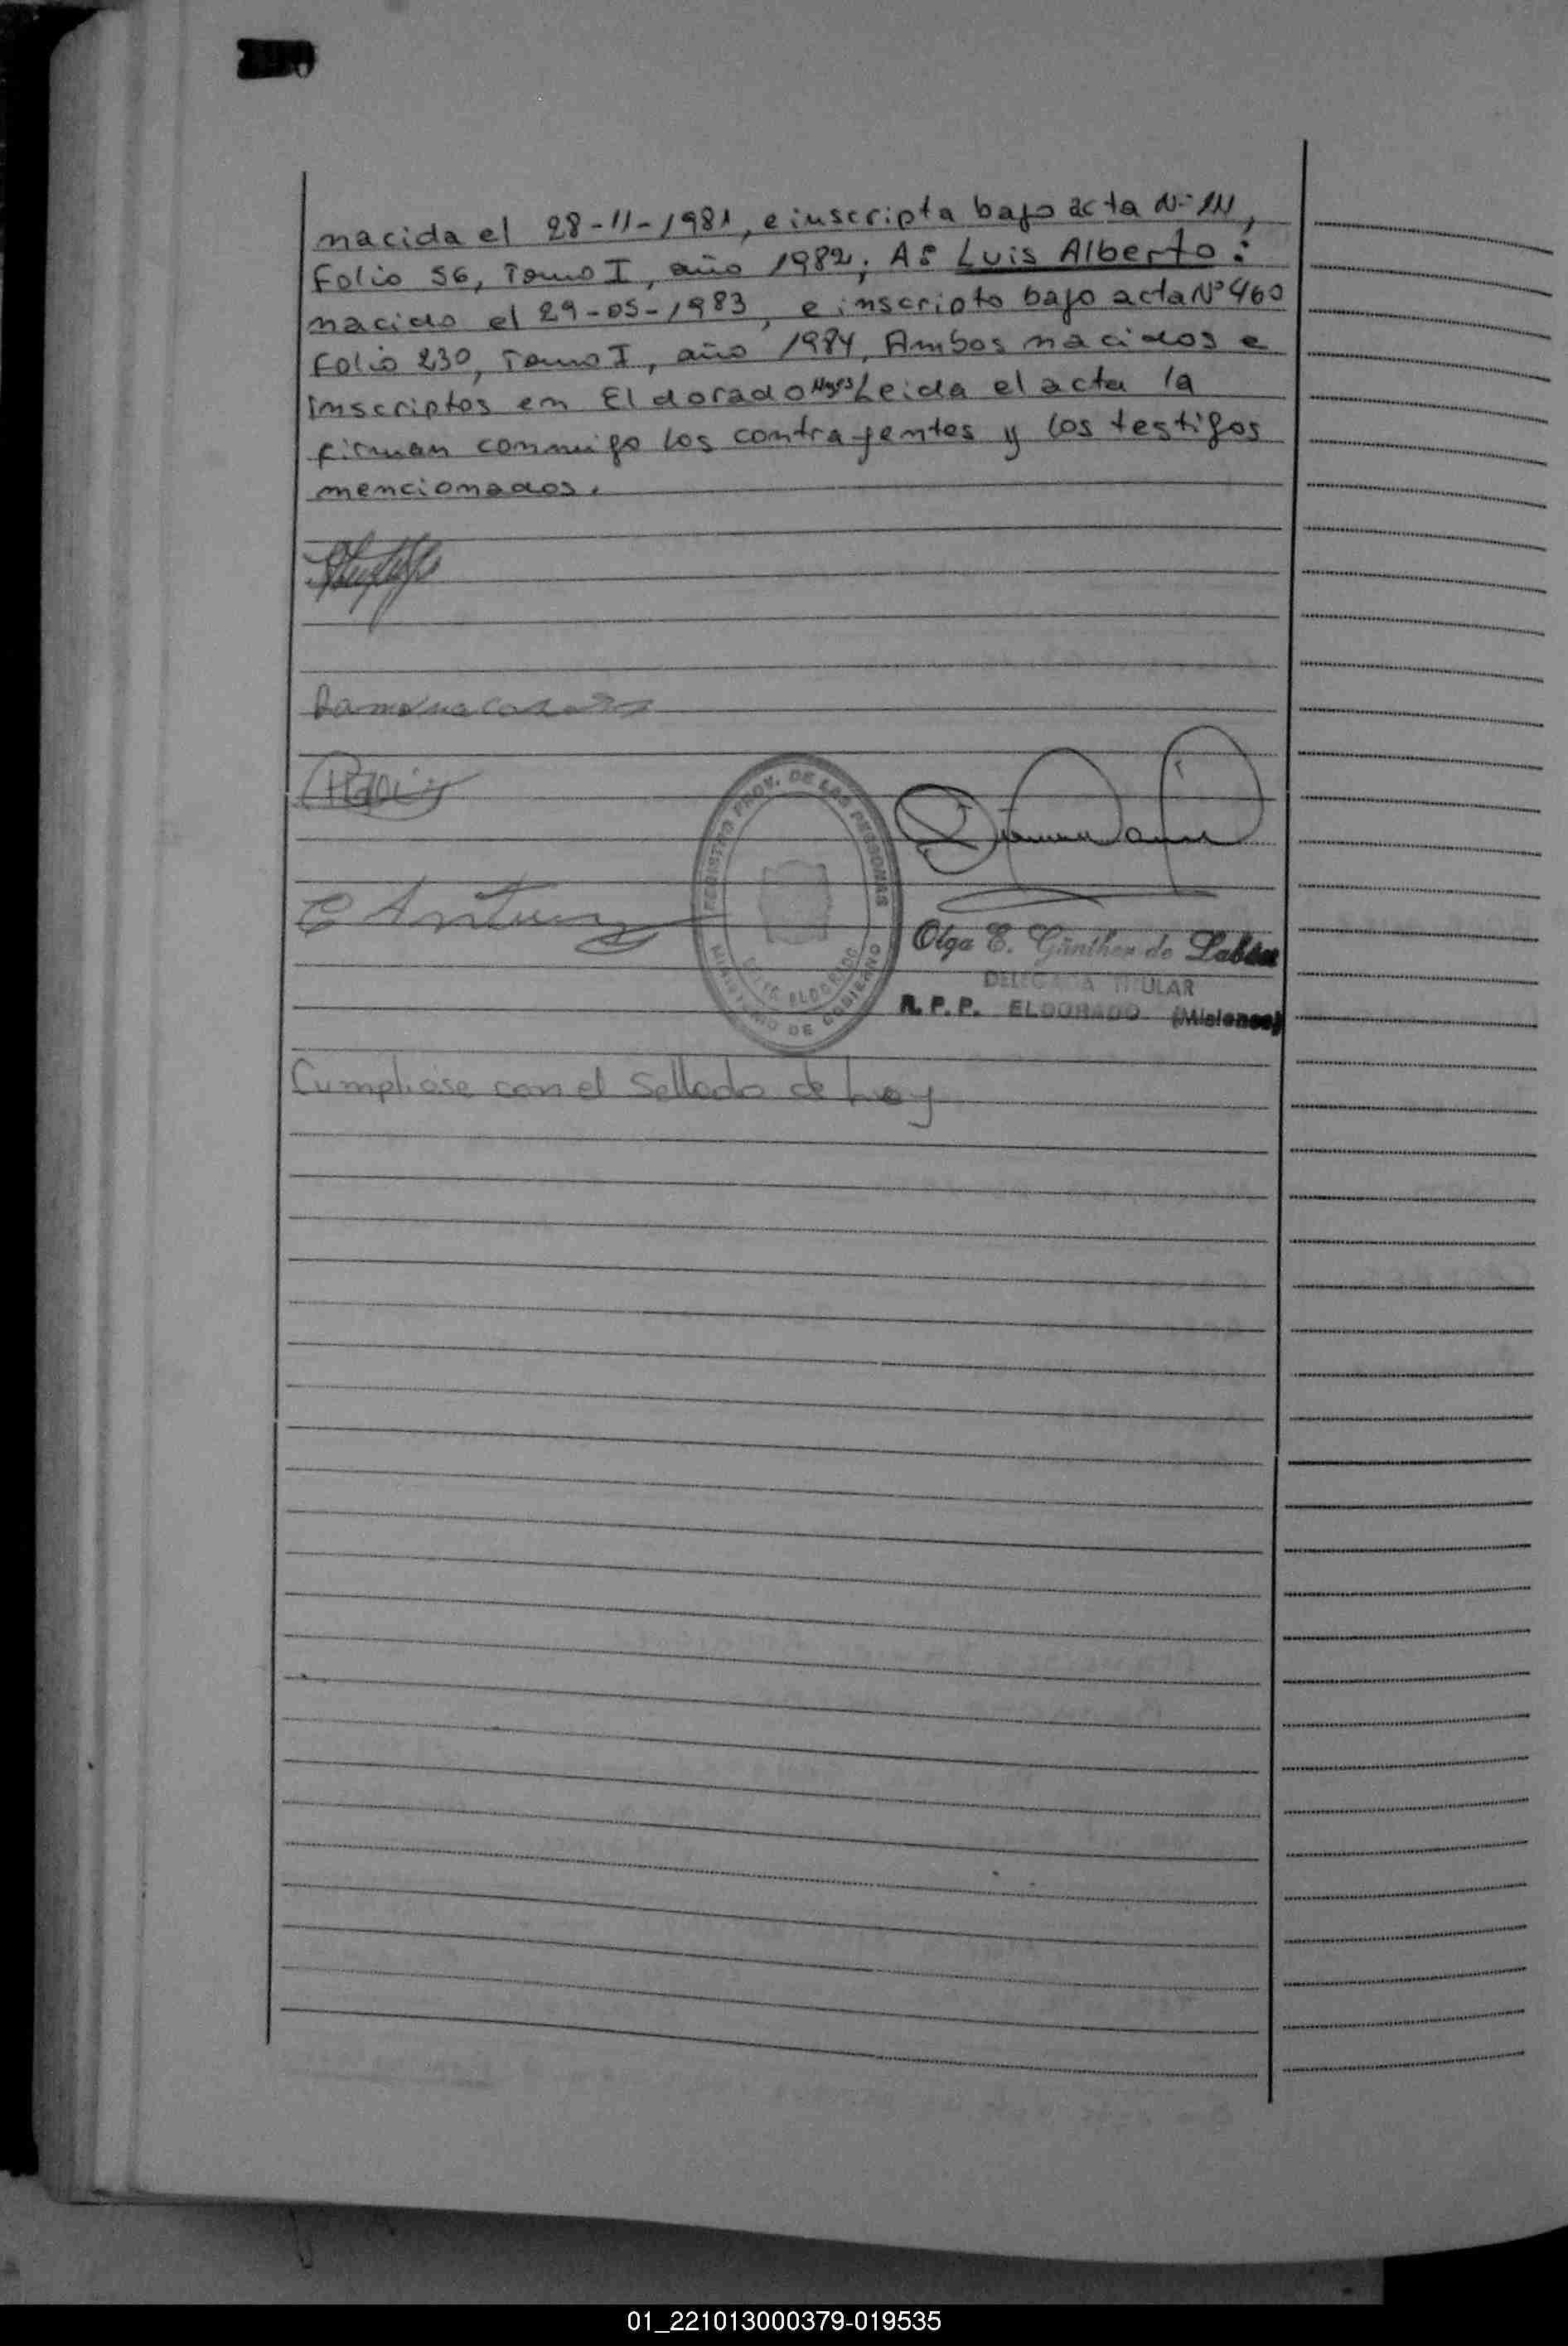 nacida el 28-11-1981, e inscripta bajo acta Nº 111,
Folio 56, Tomo I, año 1982; A: Luis Alberto:
nacido el 29-05-1983, e inscripto bajo acta Nº 460
Folio 230, Tomo I, año 1984, Ambos nacidos e
inscriptos en Eldorado Mnes Leida el acta la
firman conmigo los contrayentes y los testigos
mencionados.
Ramona
REGISTRO PROV. DE LAS PERSONAS
C Antun
Olga E. Günther de
DELEGADA TITULAR
ELDORADO
MINISTERIO DE GOBIERNO
R. P. P. ELDORADO (Misiones)
Cumpliose con el Sellado de Ley
01_221013000379-019535